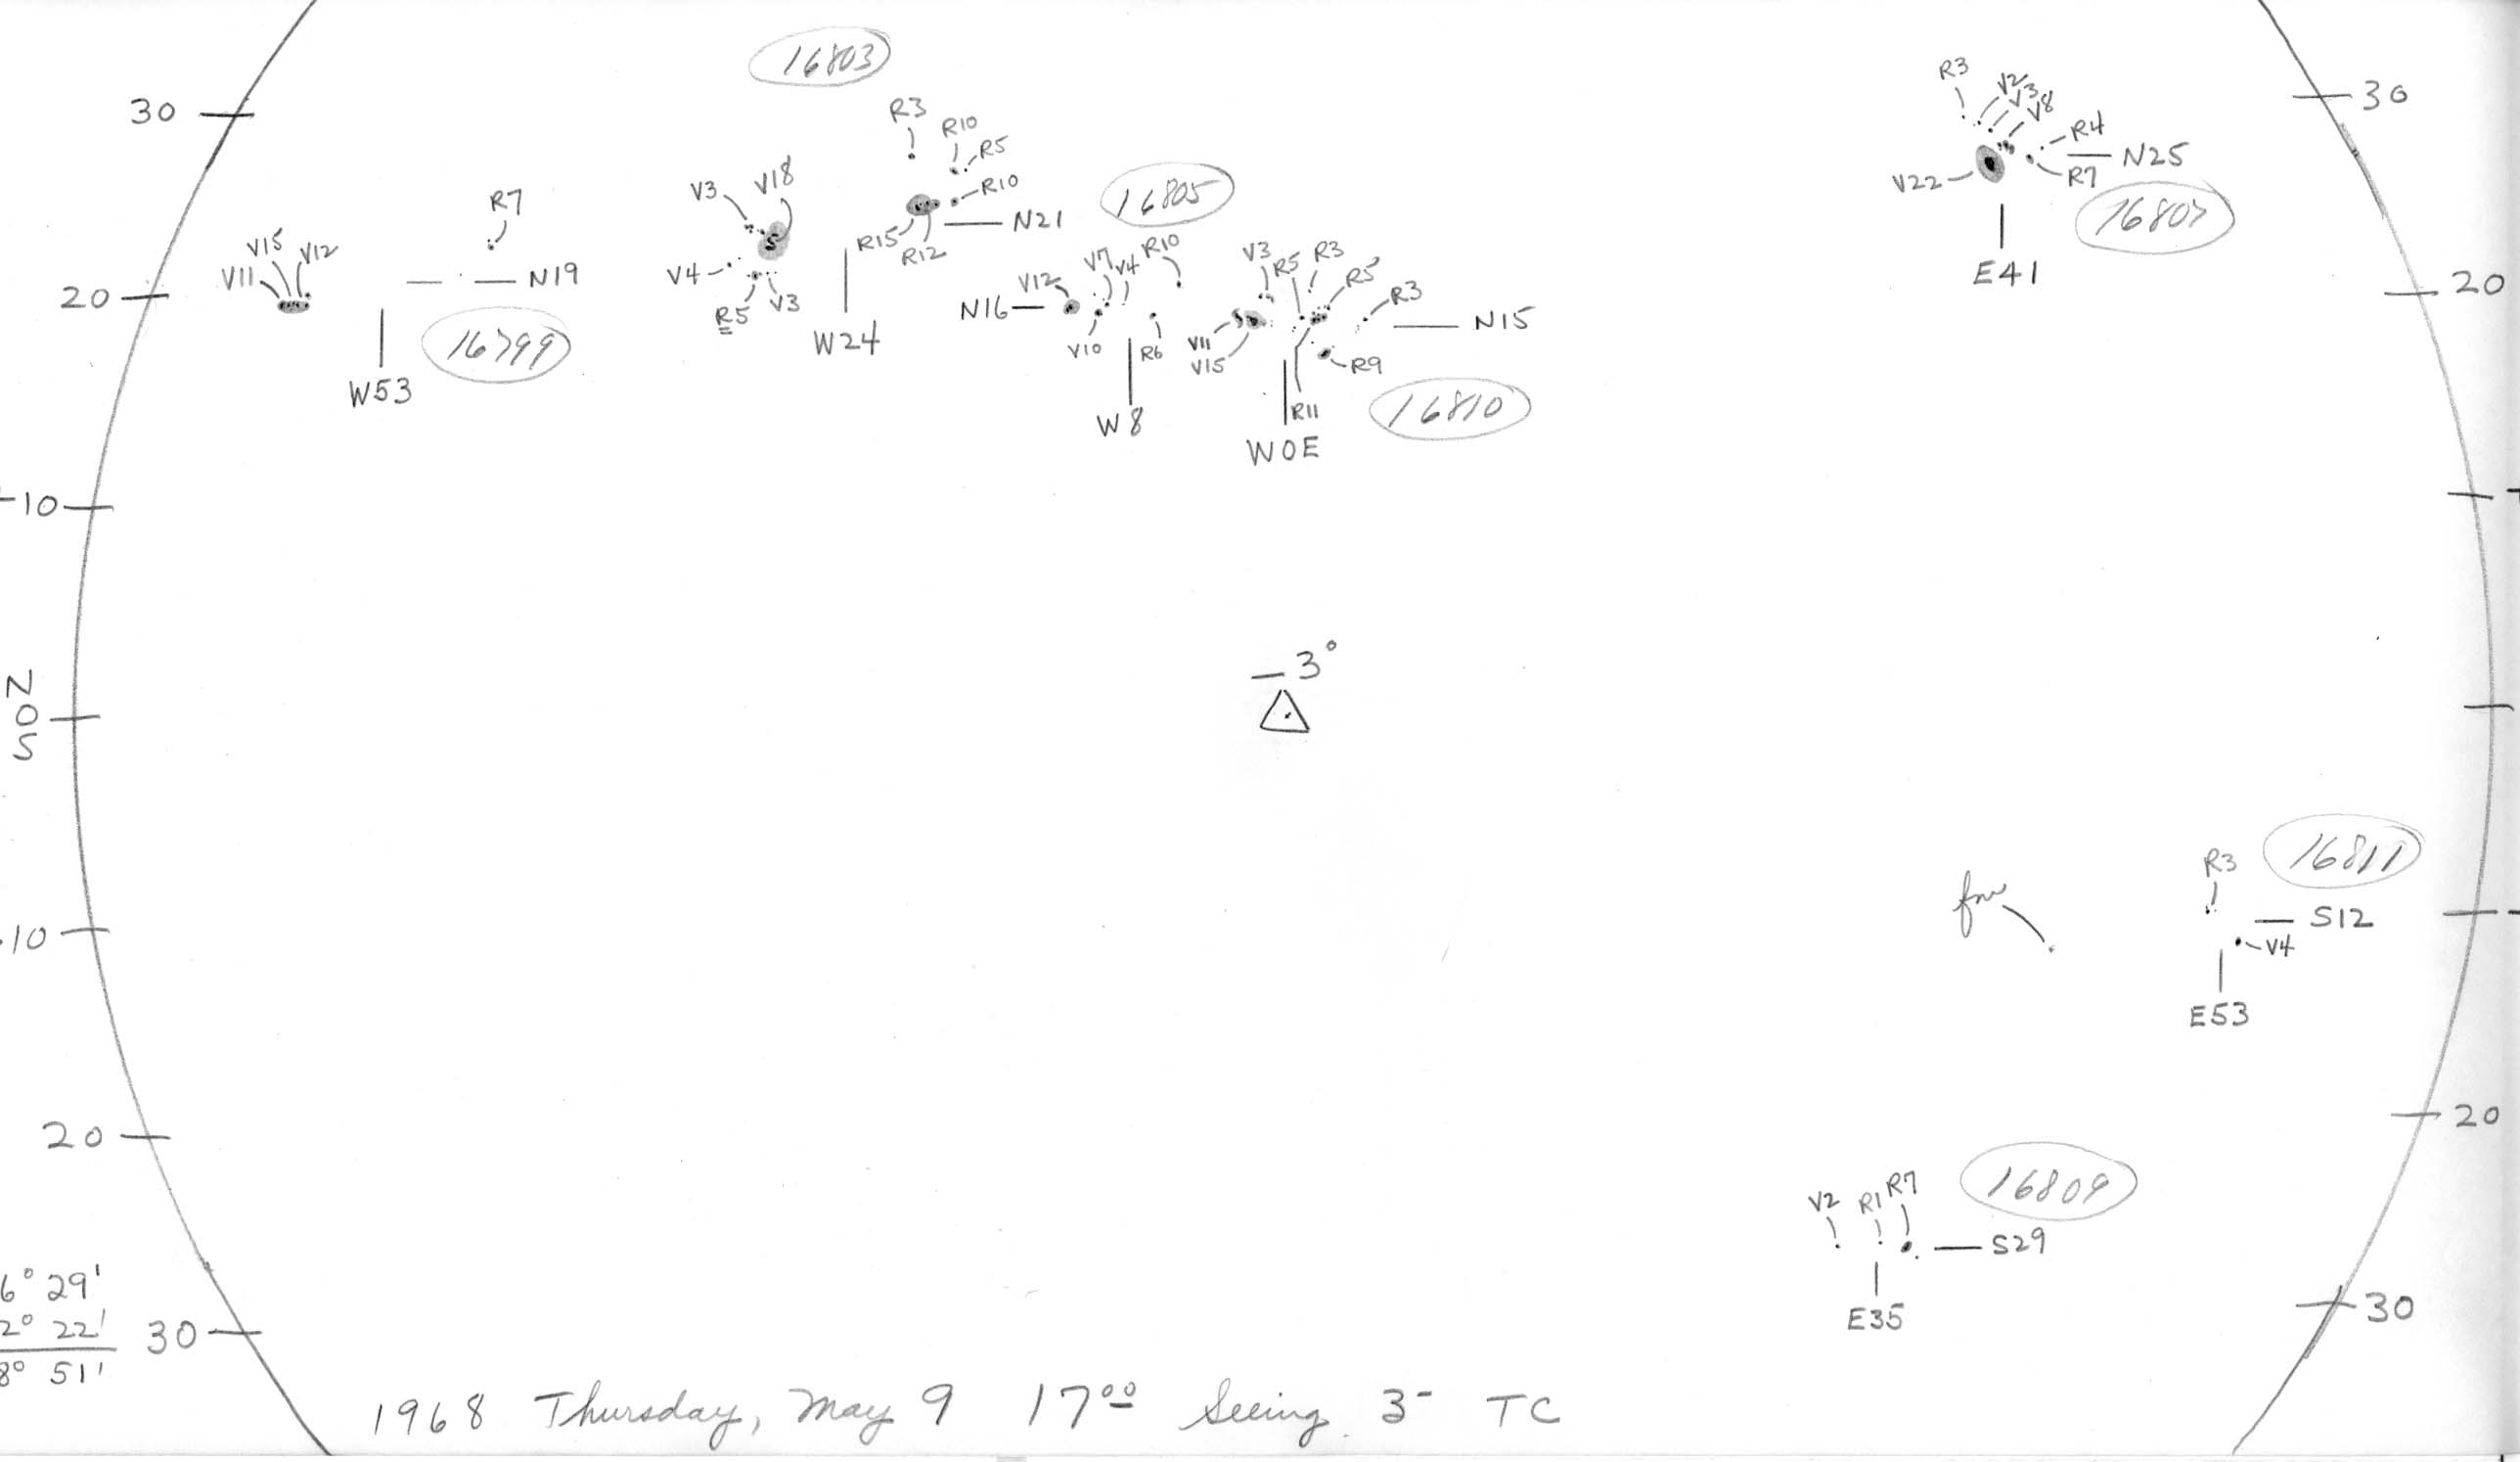 16803
30
R3
R10
R5
R10
R3
V2
V3
V8
R4
R7
V22
N25
30
16807
E41
V3
V18
R7
V15
V12
V11
N19
20
16799
W53
V4
R5
V3
R15
R12
N21
W24
16805
N16
V12
V7
V4
R10
V10
R6
W8
V3
R5
R3
R5
R3
V11
V15
N15
R9
R11
W0E
16810
20
-10
-3°
N
0
S
R3
16811
S12
V4
E53
10
20
20
V2
R1
R7
16809
S29
E35
30
6° 29'
2° 22'
8° 51'
30
1968 Thursday, May 9 17⁰⁰ Seeing 3- TC